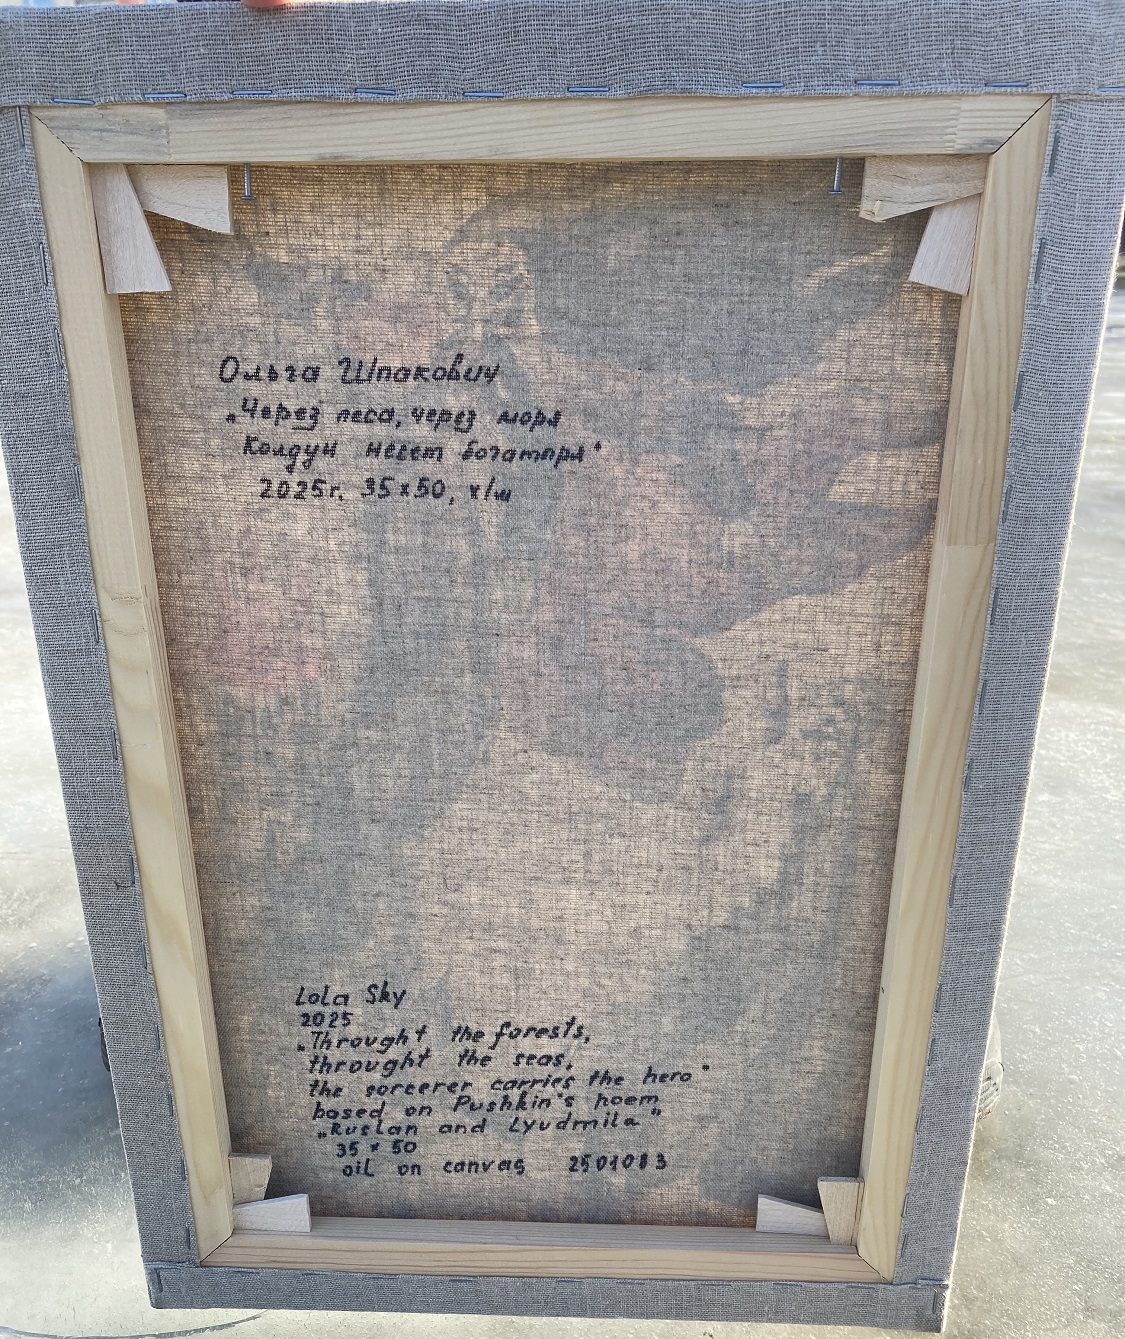 Ольга Шпакович
„Через леса, через моря
Колдун несет богатыря"
2025г. 35x50, х/м
Lola Sky
2025
„Throught the forests,
throught the seas,
the sorcerer carries the hero"
based on Pushkin's poem
„Ruslan and Lyudmila"
35 x 50
oil on canvas 2501083